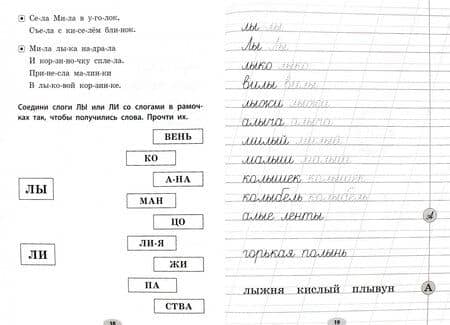 Се-ла Ми-ла в у-го-лок.
Съе-ла с ки-се-лём бли-нок.
Ми-ла лы-ка на-дра-ла
И кор-зи-ноч-ку спле-ла.
При-не-сла ма-лин-ки
В лы-ко-вой кор-зин-ке.
Соедини слоги ЛЫ или ЛИ со слогами в рамоч-
ках так, чтобы получились слова. Прочти их.
ВЕНЬ
КО
А-НА
ЛЫ
МАН
ЦО
ЛИ-Я
ЛИ
ЖИ
ПА
СТВА
лы лы
Лы Лы
лыко лыко
вилы вилы
лыжи лыжи
алыча алыча
милый милый
малыш малыш
колышек колышек
колыбель колыбель
алые ленты
А
горькая полынь
лыжня кислый плывун
А